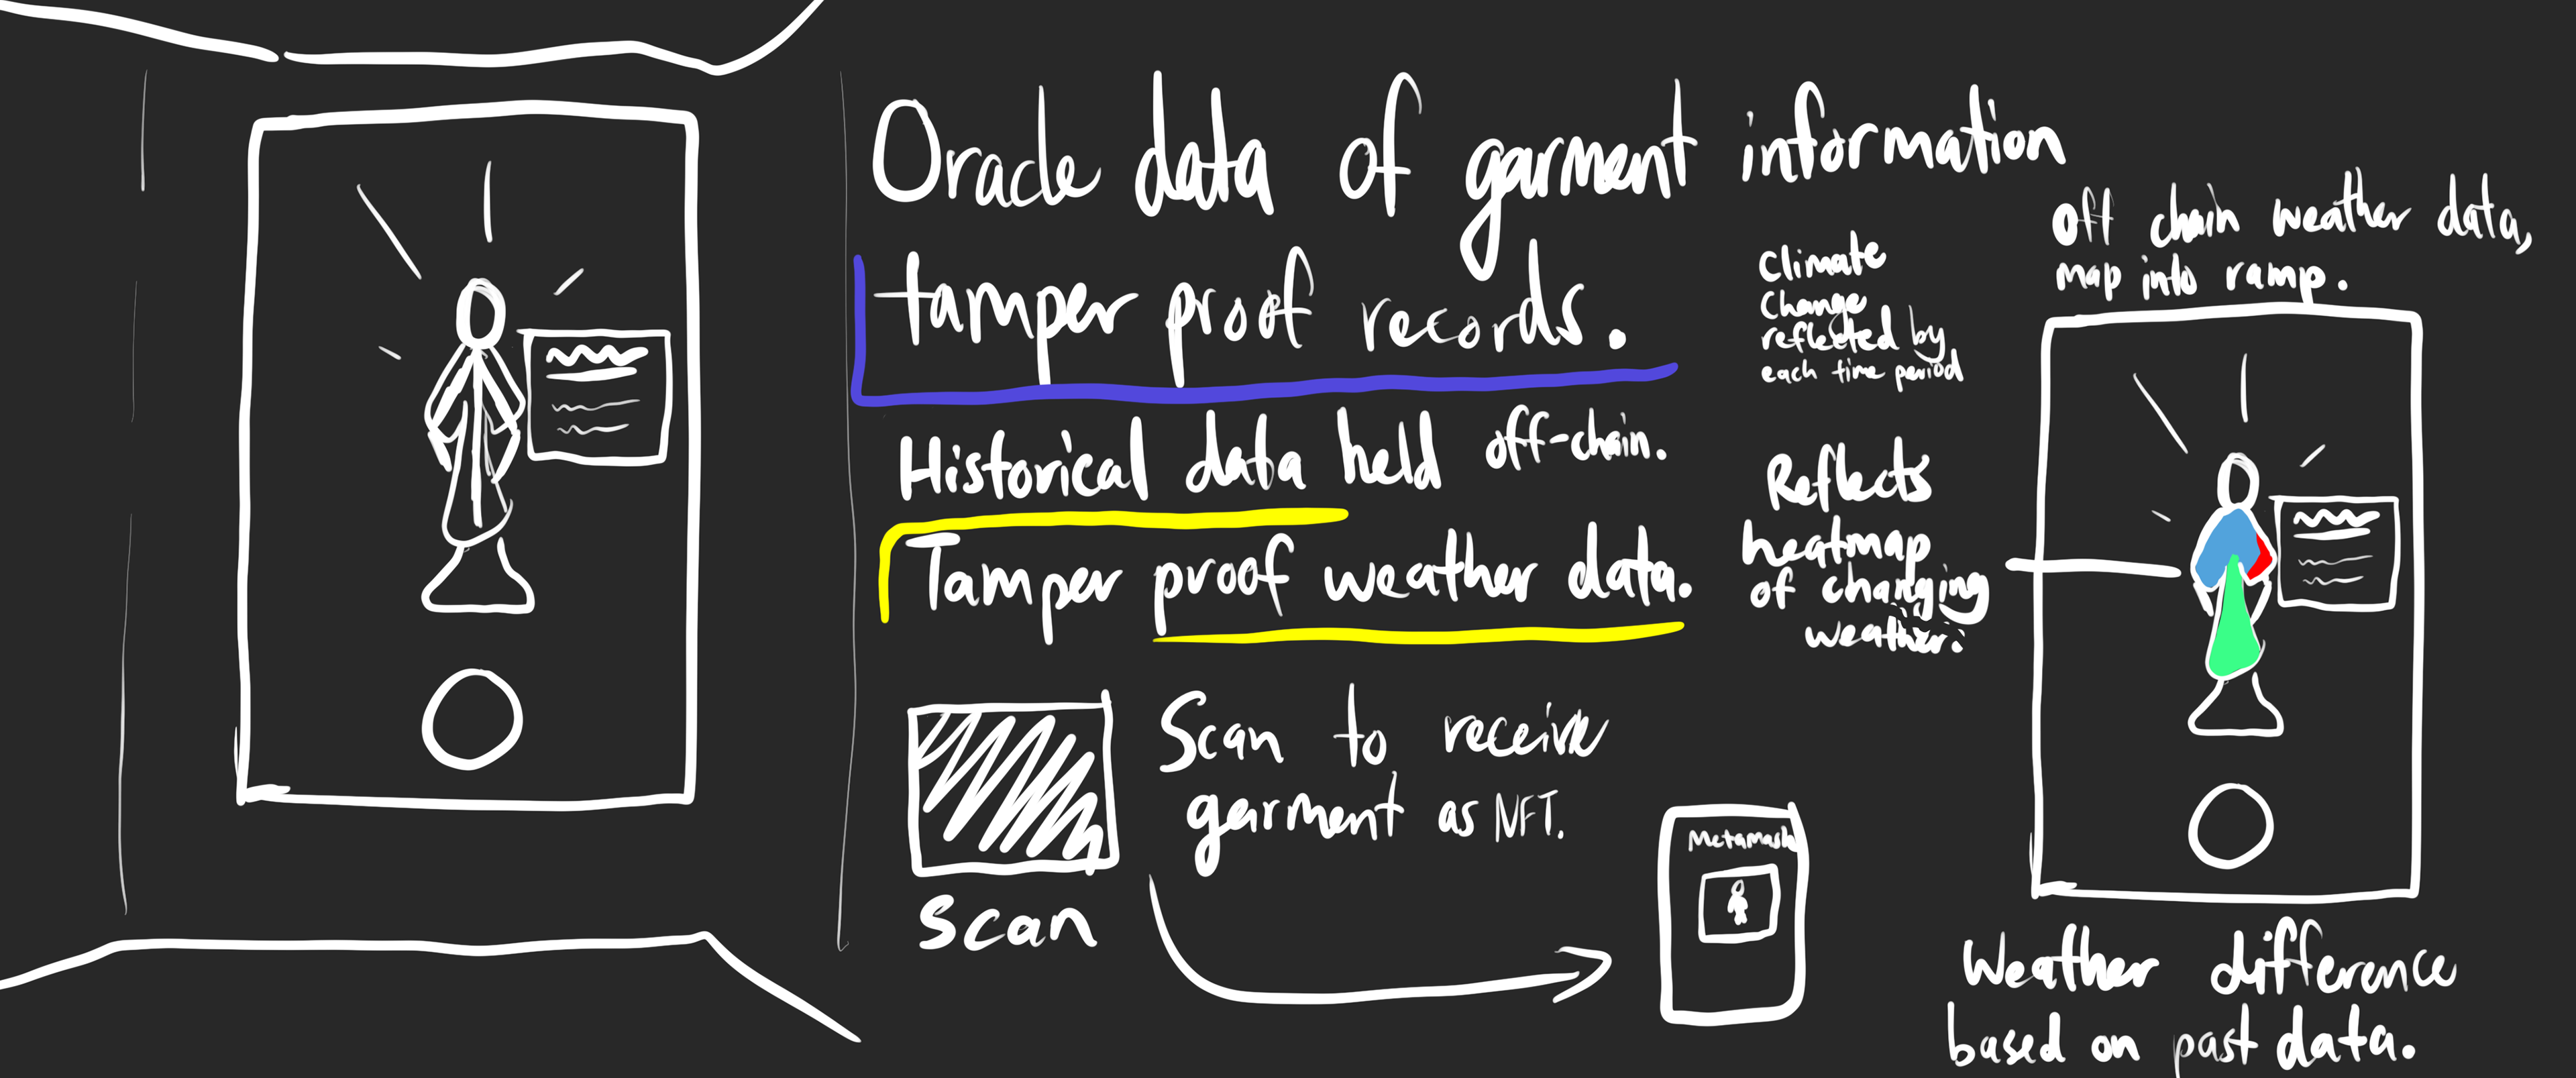 Oracle data of garment information
tamper proof records.
Historical data held off-chain.
Tamper proof weather data.
Scan to receive
garment as NFT.
scan
Metamask
Climate
Change
reflected by
each time period
Reflects
heatmap
of changing
weather.
off chain weather data,
map into ramp.
Weather difference
based on past data.